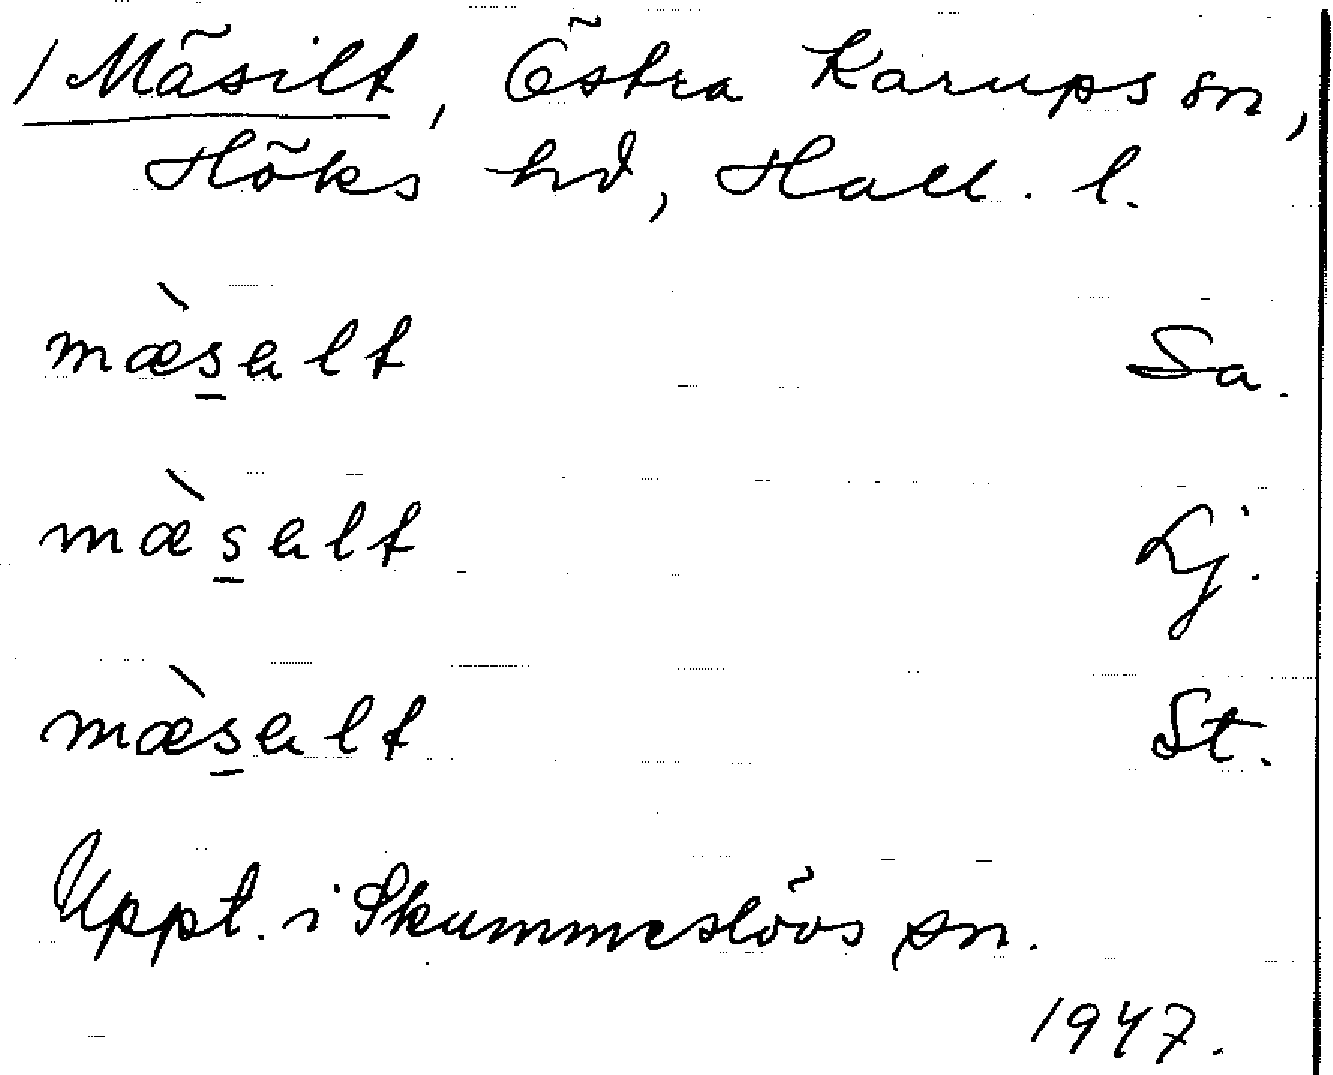 / Mäsilt, Östra Karups sn,
Höks hd, Hall. l.
mæ̀s̲ alt Sa.
mæ̀s̲ alt Lj.
mæ̀s̲ alt St.
Uppt. i Skummeslövs sn.
1947.